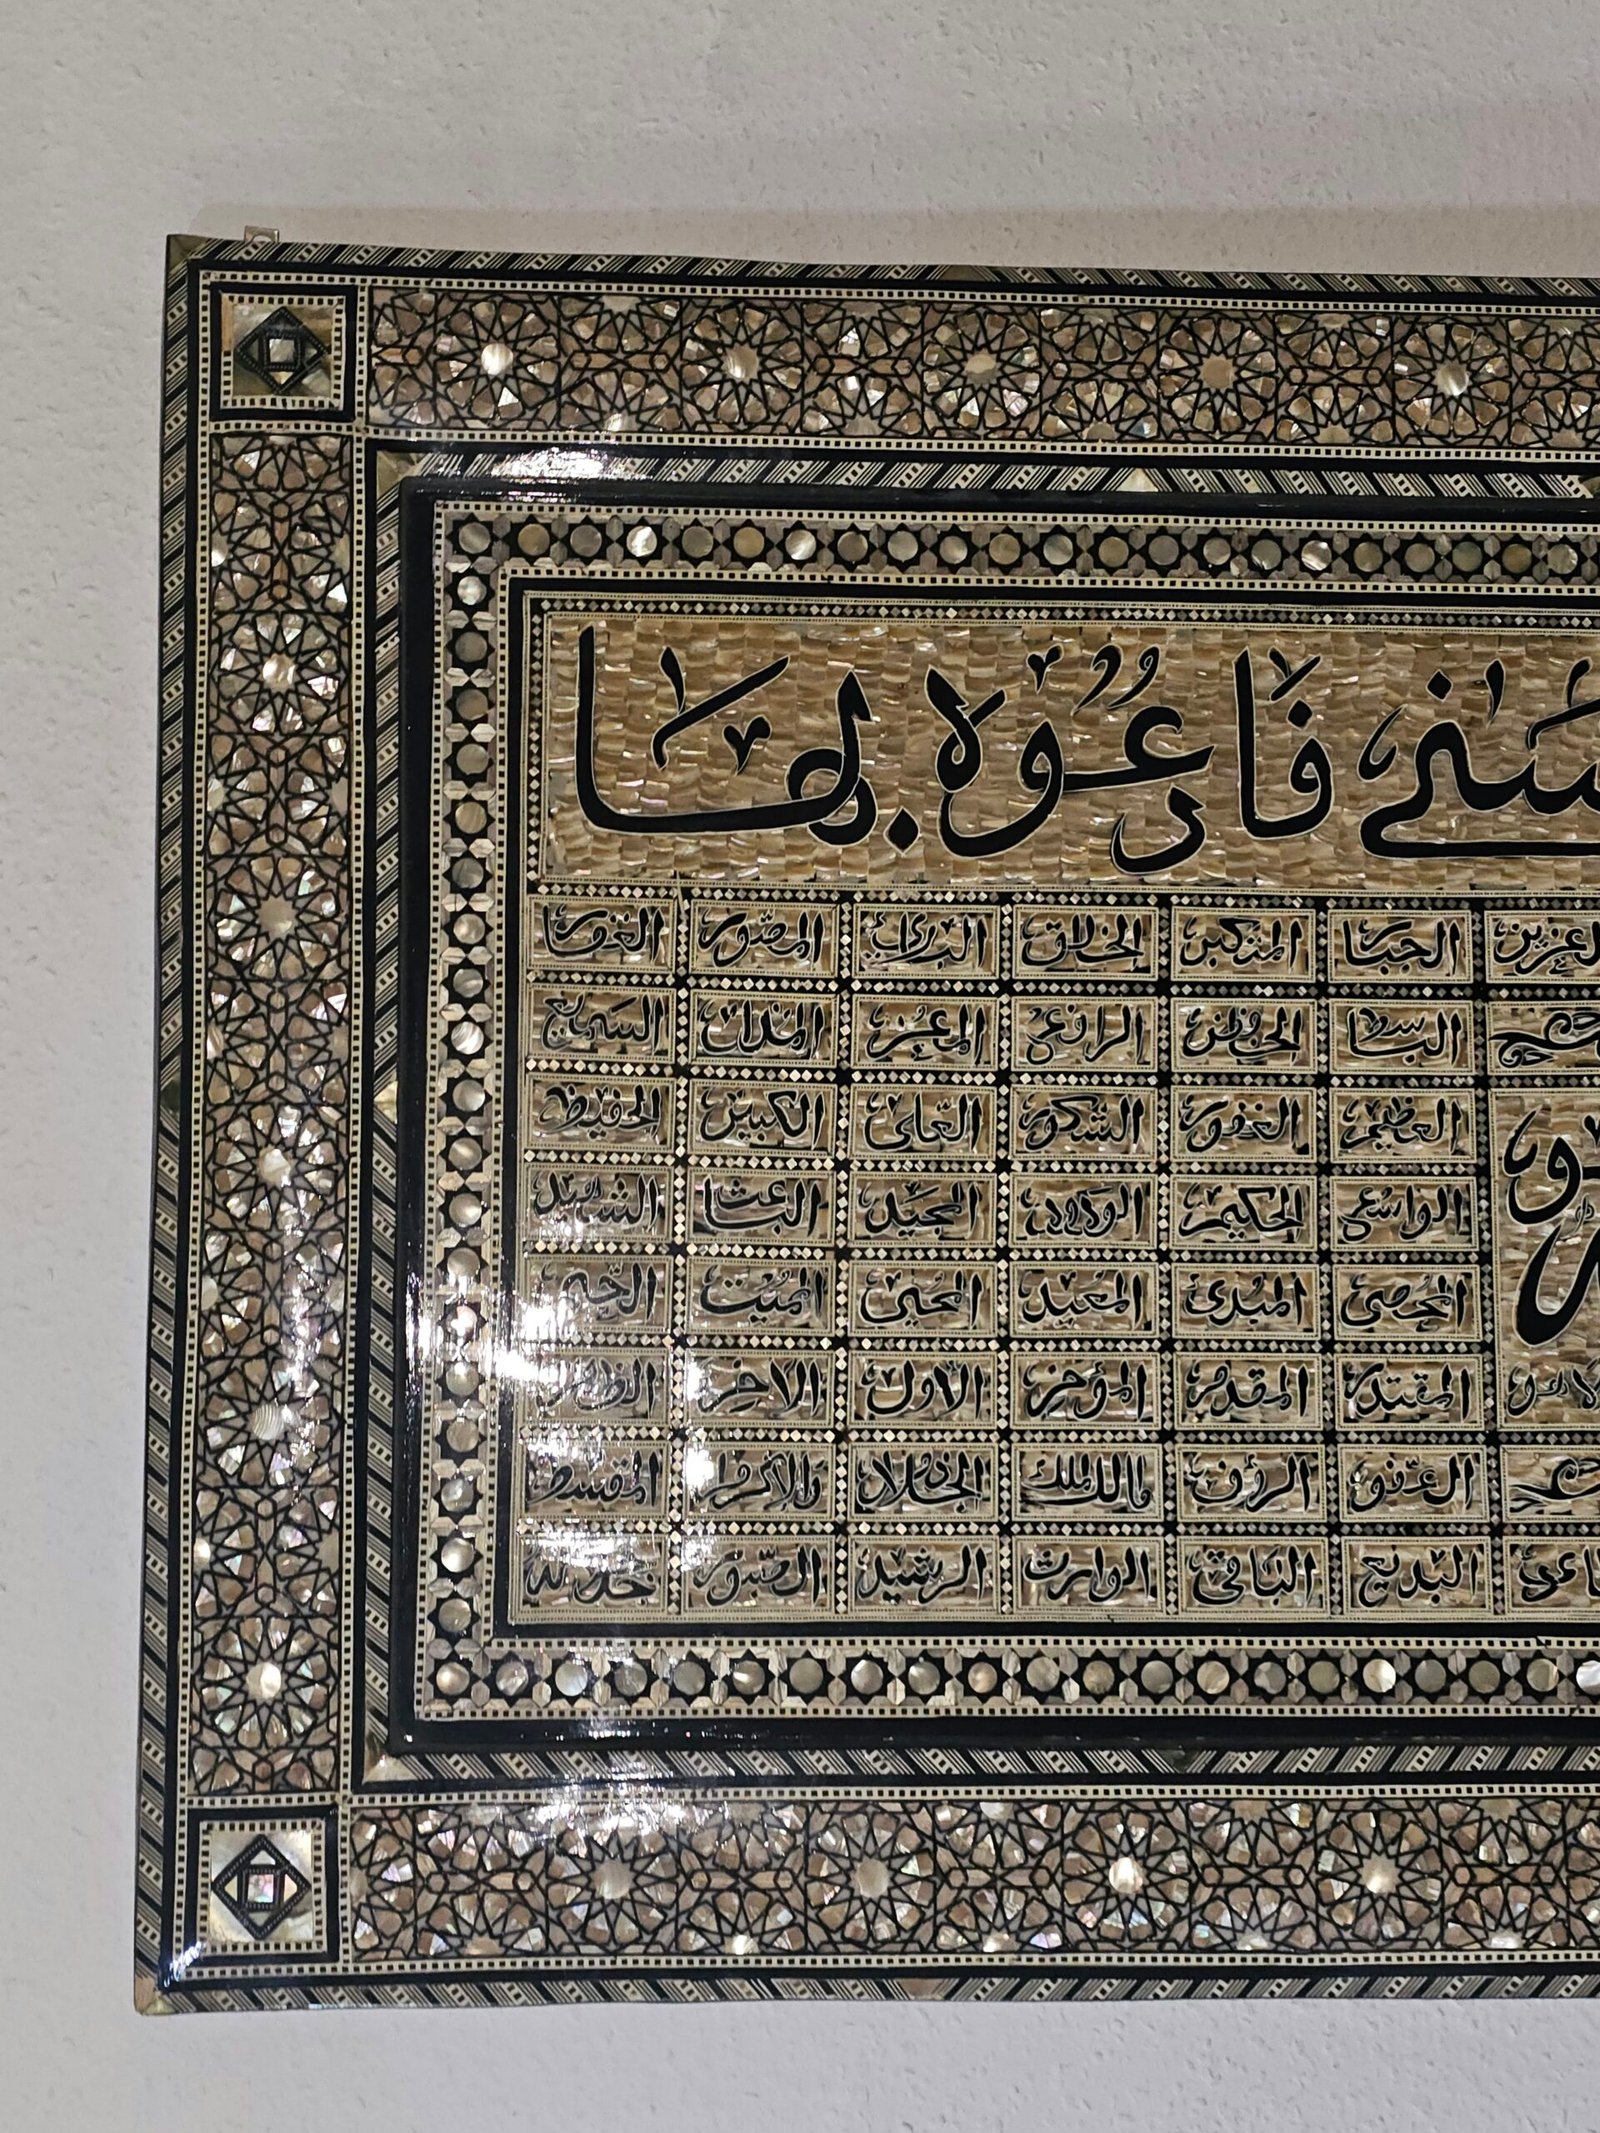 فَادْعُوهُ بِهَا
الجبار المتكبر الخالق البارئ المصوّر الغفار
الباسط الخافض الرافع المعز المذل السميع
العظيم الغفور الشكور العلي الكبير الحفيظ
الواسع الحكيم الودود المجيد الباعث الشهيد
المحصي المبدئ المعيد المحيي المميت الحي
المقتدر المقدم المؤخر الأول الاخر الظاهر
العفو الرؤف مالك الملك ذو الجلال والاكرام المقسط
البديع الباقي الوارث الرشيد الصبور جل جلاله